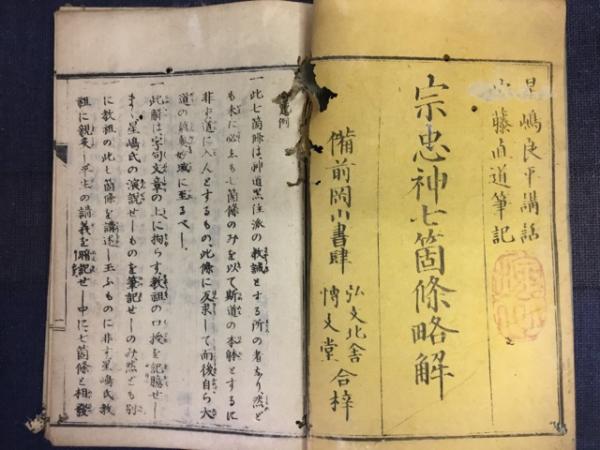 星嶋良平講話
藤直道筆記
宗忠神七箇條略解
備前岡山書肆
弘文北舎
博文堂
合梓
例
一此七箇條は神道黒住派の教誡とする所の者なり然ど
も未に必ずしも七箇條のみを以て斯道の本躰とするに
非ず道に入んとするもの此條に反求して而後自ら大
道の に至るべし
一此解は字句文章の上に拘らず教祖の口授を記臆せし
まゝ星嶋氏の演説せしものを筆記せしのみ然ども別
に教祖の此七箇條を講述し玉ふものに非ず星嶋氏教
祖に親来し平生の講義を暗記せし中に七箇條と相發